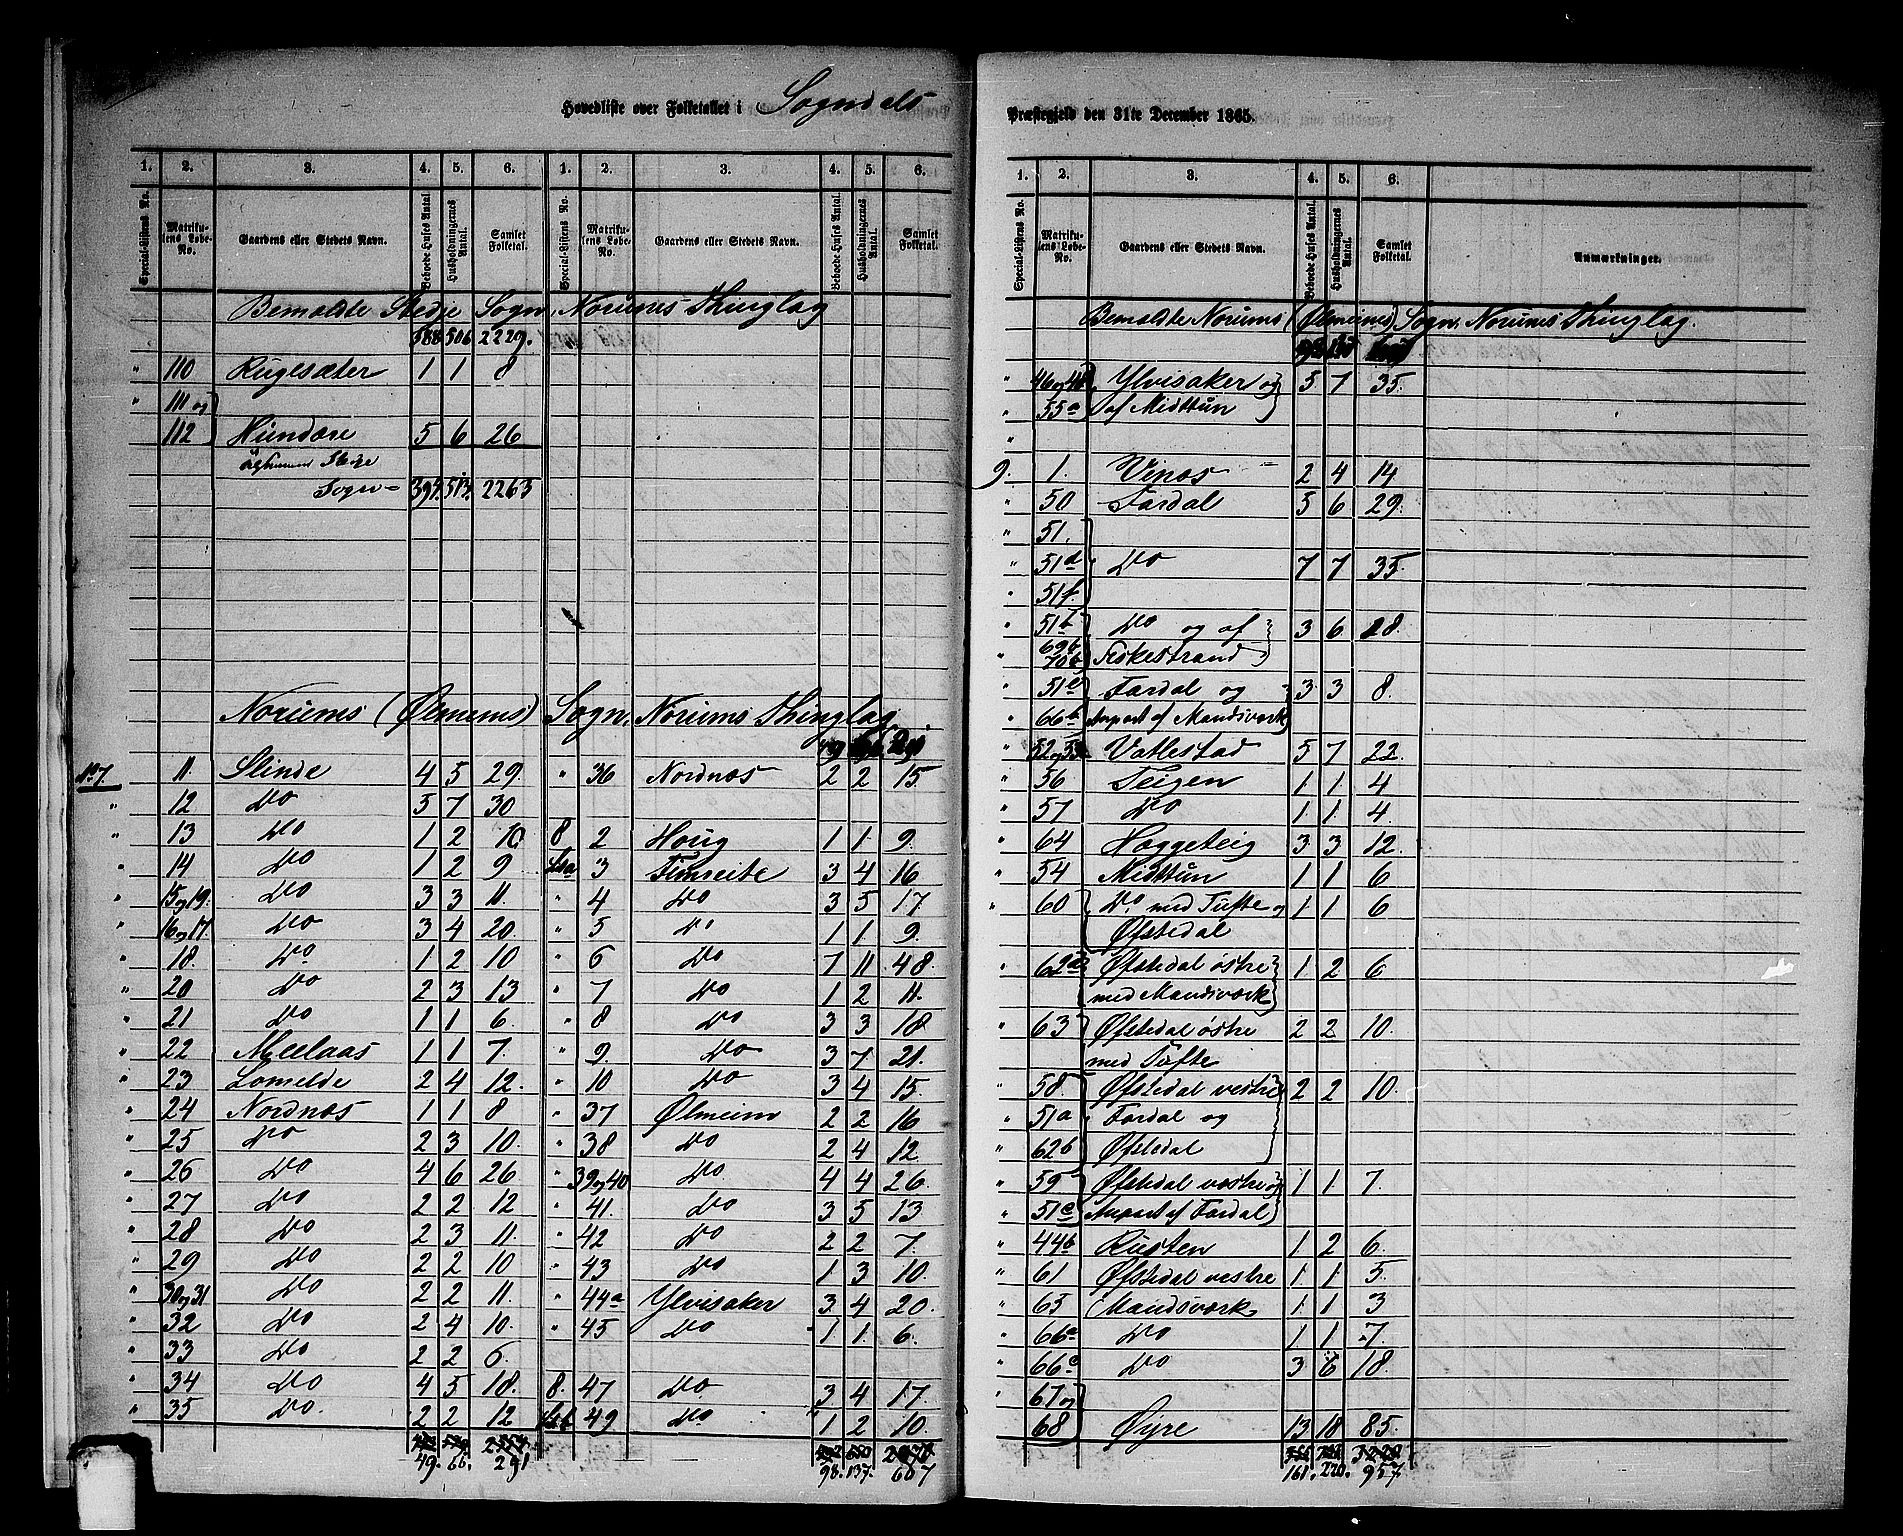 Hovedliste over Folketallet i Sogndals Præstegjeld den 31te December 1865.
1. 2. 3. 4. 5. 6. 1. 2. 3. 4. 5. 6.
Special-Listens No. Matrikulens Løbe-No. Gaardens eller Stedets Navn. Beboede Huses Antal. Husholdningernes Antal. Samlet Folketal. Special-Listens No. Matrikulens Løbe-No. Gaardens eller Stedets Navn. Beboede Huses Antal. Husholdningernes Antal. Samlet Folketal.
Bemeldte Stedje Sogn, Norums Thinglag
388 506 2229.
" 110 Rugesæter 1 1 8
" 111 og
" 112 Hundere 5 6 26
Stedje
Sogn = 394. 513. 2263
Norums (Ølmems) Sogn. Norums Thinglag.
No 7 11. Slinde 4 5 29. " 36 Nordnæs 2 2 15.
" 12 Do 5 7 30
" 13 Do 1 2 10 8 2 Houg 1 1 9.
" 14 Do 1 2 9 Lit a 3 Fimreite 3 4 16
" 15 og 19. Do 3 3 11. " 4 Do 3 5 17.
" 16 og 17. Do 3 4 20. " 5 Do 1 1 9.
" 18. Do 1 2 10 " 6 Do 7 11 48.
" 20 Do 2 3 13 " 7 Do 1 2 11.
" 21 Do 1 1 6. " 8 Do 3 3 18
" 22 Meelaas 1 1 7. " 9. Do 3 7 21.
" 23 Lomelde 2 4 12. " 10 Do 3 4 15.
" 24 Nordnæs 1 1 8 " 37 Ølmeim 2 2 16
" 25 Do 2 3 10. " 38 Do 2 4 12.
" 26 Do 4 6 26 " 39 og 40 Do 4 4 26.
" 27 Do 2 2 12 " 41. Do 3 5 13
" 28 Do 2 3 11. " 42 Do 2 2 7.
" 29 Do 2 2 10 " 43 Do 1 3 10.
" 30 og 31 Do 2 2 11. " 44a Ylvisaker 3 4 20.
" 32 Do 2 4 10. " 45 Do 1 1 6.
" 33 Do 2 2 6.
" 34 Do 4 5 18. 8. 47 Do 3 4 17.
" 35 Do. 2 2 12 Lit b 49 Do 1 2 10.
49. 66. 291 98. 137. 607
1. 2. 3. 4. 5. 6.
Special-Listens No. Matrikulens Løbe-No. Gaardens eller Stedets Navn. Beboede Huses Antal. Husholdningernes Antal. Samlet Folketal. Anmærkninger.
Bemeldte Norums (Ølmems) Sogn, Norums Thinglag.
" 46 og 48 Ylvisaker og 5 7 35.
" 55a af Midttun
"
9. 1. Vines 2 4 14
" 50 Fardal 5 6 29.
" 51.
" 51d Do 7 7 35.
" 51f.
" 51b Do og af 3 6 28.
" 69b 70b Fiskestrand
" 51e Fardal og 3 3 8.
" 66b Anpart af Mandsværk
" 52 og 53 Vatlestad 5 7 22.
" 56 Teigen 1 1 4
" 57 Do 1 1 4.
" 64 Haggeteig 3 3 12.
" 54 Midttun 1 1 6
" 60 Do med Tufte og 1 1 6
Øfstedal
" 62a Øfstedal østre 1 2 6
med Mandsværk
" 63 Øfstedal østre 2 2 10.
med Tufte
" 58 Øfstedal vestre 2 2 10.
" 51a Fardal og
" 62b Øfstedal
" 59 Øfstedal vestre og 1 1 7.
" 51c Anpart af Fardal
" 44b Rusten 1 2 6.
" 61 Øfstedal vestre 1 1 5.
" 65 Mandsværk 1 1 3
" 66a Do 1 1 7.
" 66c Do 3 6 18.
" 67 og
" 68 Øyre 13 18 85.
161. 220. 957